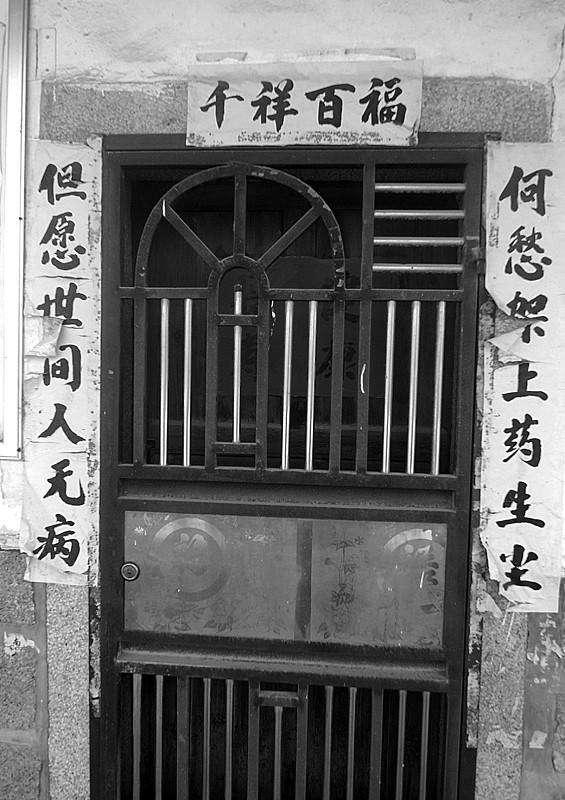 千祥百福
但愿世间人无病
何愁架上药生尘